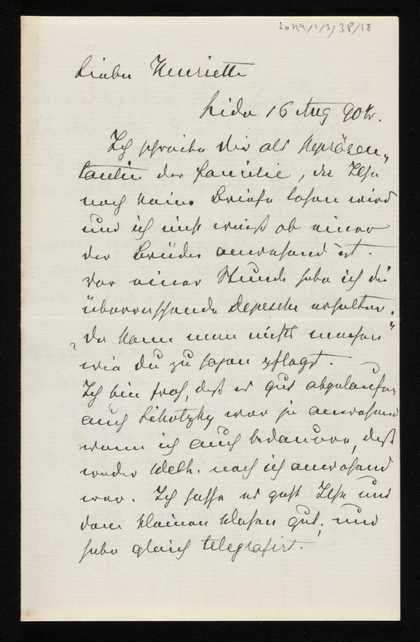 Liebe Henriette
Lido 16 Aug 904.
Ich schreibe Dir als Repräsen„
tantin der Familie, da Ilse
noch keine Briefe lesen wird
und ich nicht weiß ob einer
der Brüder anwesend ist.
Vor einer Stunde habe ich die
überraschende Depesche erhalten.
„Da kann man nichts machen“
wie Du zu sagen pflegst.
Ich bin froh, daß es gut abgelaufen
auch Lihotzky war ja anwesend
wenn ich auch bedauere, daß
weder noch ich anwesend
war. Ich hoffe es geht Ilse und
dem kleinen Wesen gut, und
habe gleich telegrafirt.